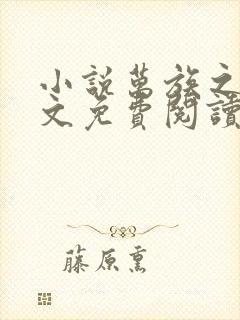 小說萬族之
文免費閱讀
藤原熏